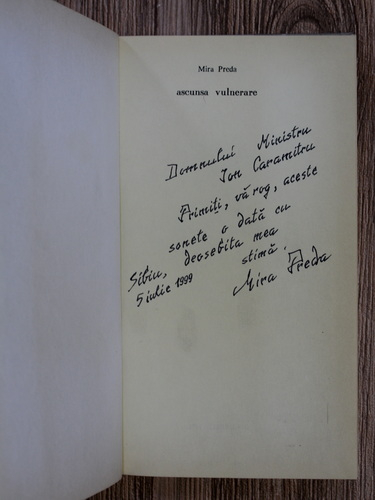 Mira Preda
ascunsa vulnerare
Domnului Ministru
Ion Caramitru
Primiți, vă rog, aceste
sonete o dată cu
deosebita mea
stimă,
Mira Preda
Sibiu,
5 iulie 1999